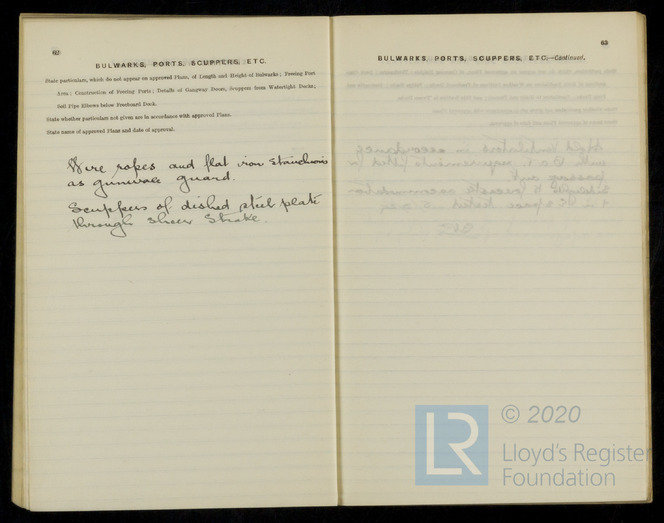 62
BULWARKS, PORTS, SCUPPERS, ETC.
State particulars, which do not appear on approved Plans, of Length and Height of Bulwarks; Freeing Port
Area; Construction of Freeing Ports; Details of Gangway Doors, Scuppers from Watertight Decks;
Soil Pipe Elbows below Freeboard Deck.
State whether particulars not given are in accordance with approved Plans.
State name of approved Plans and date of approval.
Wire ropes and flat iron stanchions
as gunwale guard.
Scuppers of dished steel plate
through sheer strake.
63
BULWARKS, PORTS, SCUPPERS, ETC.—Continued.
LR
© 2020
Lloyd's Register
Foundation